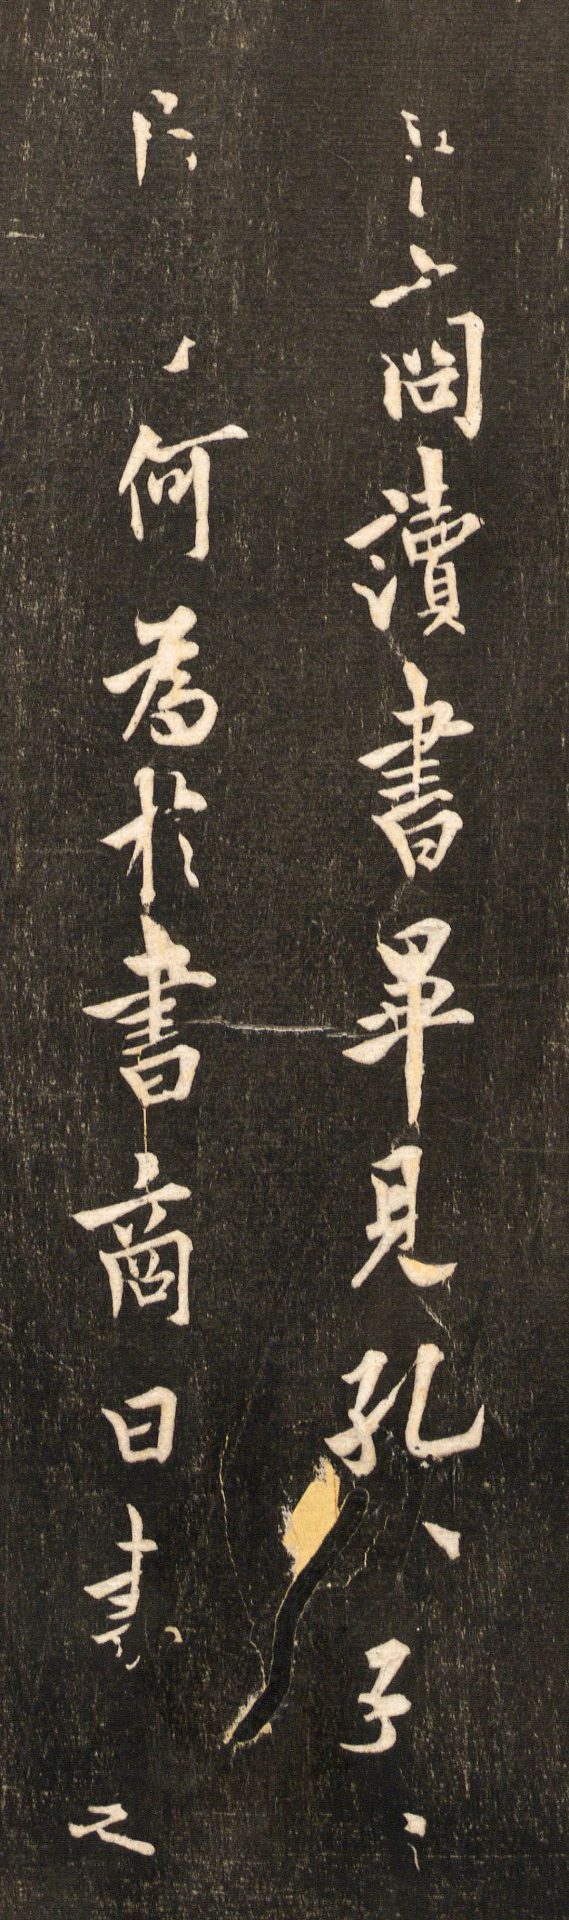 商讀書畢見孔子
何為於書商曰書之